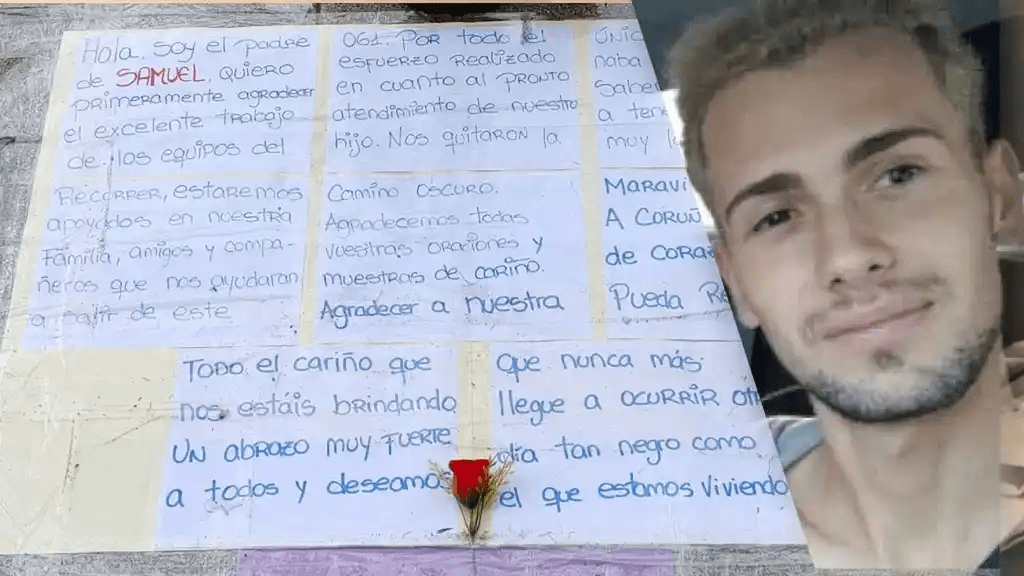 Hola. Soy el padre
de SAMUEL, QUIERO
primeramente agradecer
el excelente trabajo
de los equipos del
061. Por todo el
esfuerzo realizado
en cuanto al pronto
atendimiento de nuestro
hijo. Nos quitaron la
ÚNIC
naba
Sabe
a ten
muy l
Recorrer, estaremos
apoyados en nuestra
Familia, amigos y compa-
ñeros que nos ayudaran
a salir de este
Camino oscuro.
Agradecemos todas
vuestras oraciones y
muestras de cariño.
Agradecer a nuestra
Maravi
A CORUÑ
de CORA
Pueda Re
Todo el cariño que
nos estáis brindando
UN abrazo muy fuerte
a todos y deseamos
que nunca más
llegue a ocurrir otr
día tan negro como
el que estamos viviendo